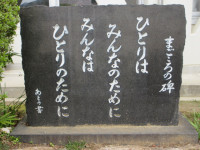 まごころの碑
ひとりは
みんなのために
みんなは
ひとりのために